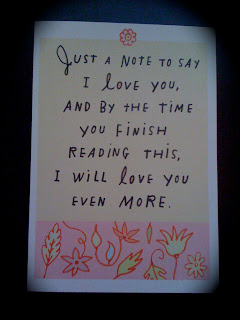 Just a note to say
I love you,
and by the time
you finish
reading this,
I will love you
even more.